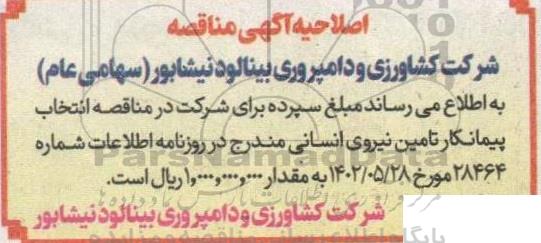 اصلاحیه آگهی مناقصه
شرکت کشاورزی و دامپروری بینالود نیشابور (سهامی عام)
به اطلاع می رساند مبلغ سپرده برای شرکت در مناقصه انتخاب
پیمانکار تامین نیروی انسانی مندرج در روزنامه اطلاعات شماره
۲۸۴۶۴ مورخ ۱۴۰۲/۰۵/۲۸ به مقدار ۱,۰۰۰,۰۰۰,۰۰۰ ریال است.
شرکت کشاورزی و دامپروری بینالود نیشابور
ParsNamadData